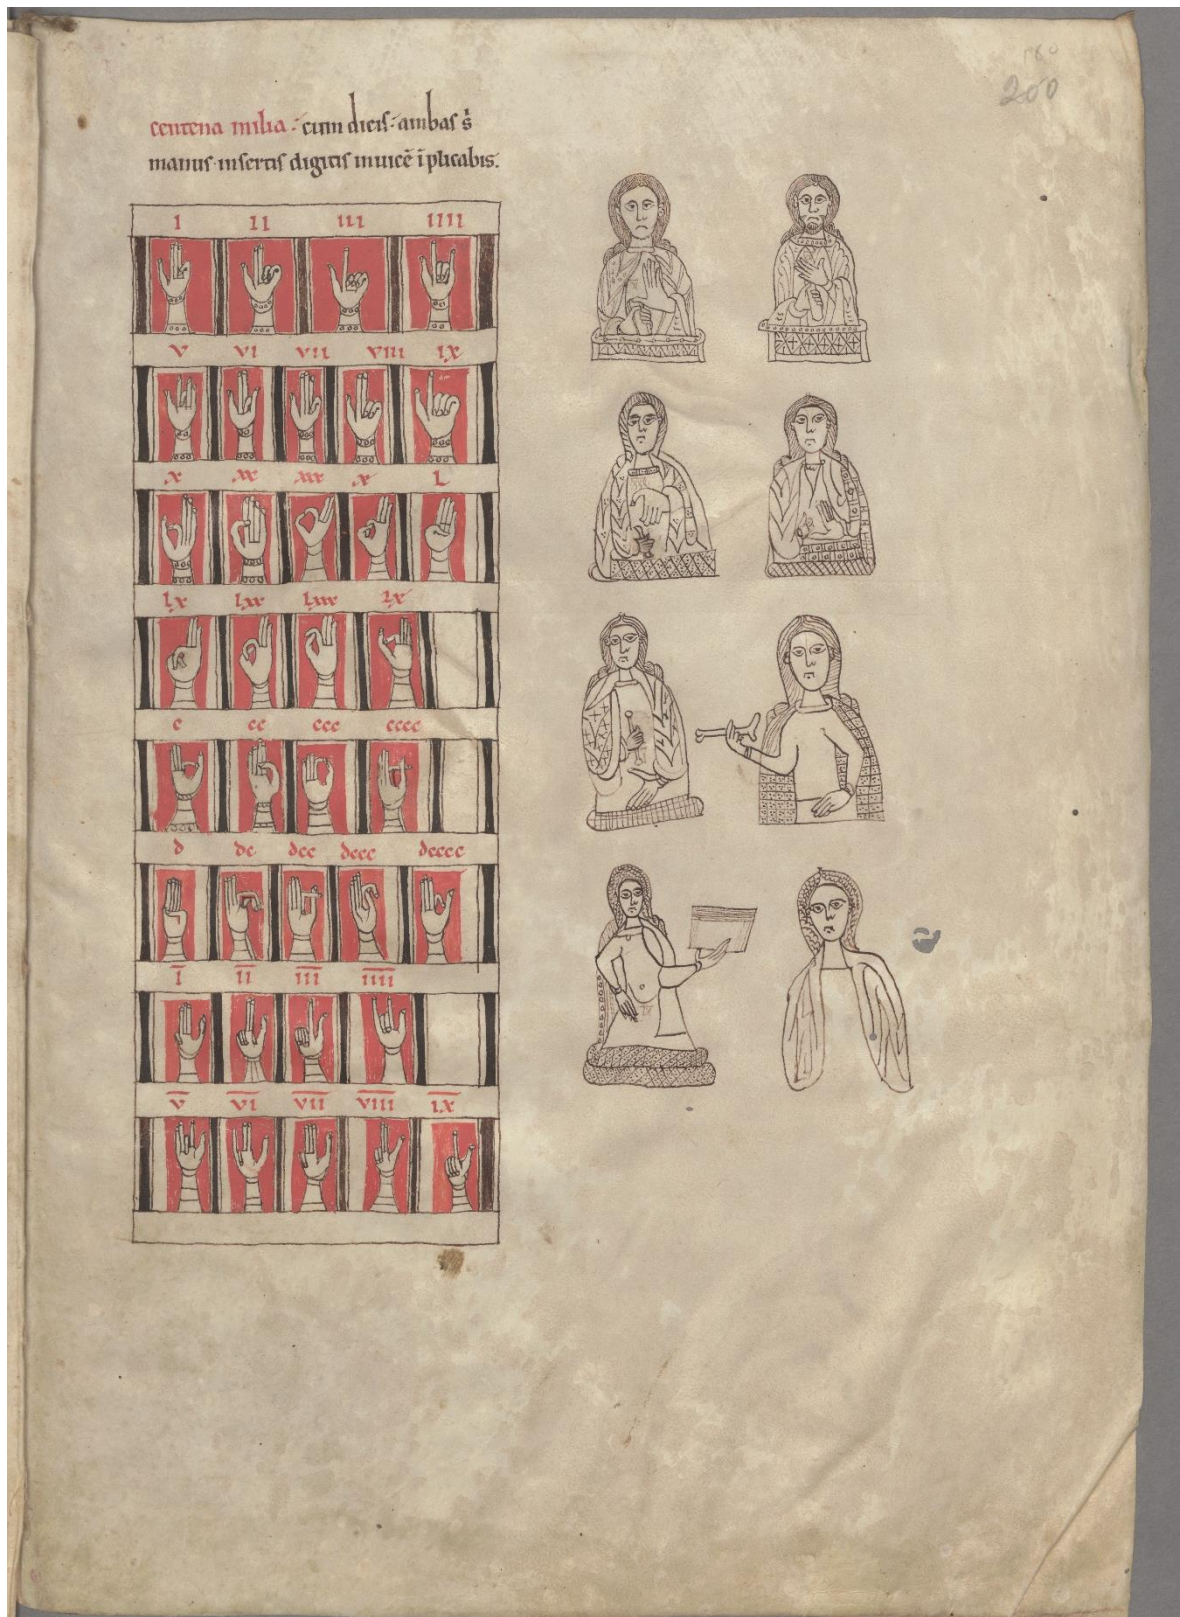 180
200
centena milia· cum dicis· ambas s̓
manus· insertis digitis inuicē īplicabis.
I II III IIII
V VI VII VIII IX
X XX XXX X L
LX LXX LXXX LX
c cc ccc cccc
d dc dcc dccc dcccc
I̅ I̅I̅ I̅I̅I̅ I̅I̅I̅I̅
V̅ V̅I̅ V̅I̅I̅ V̅I̅I̅I̅ I̅X̅